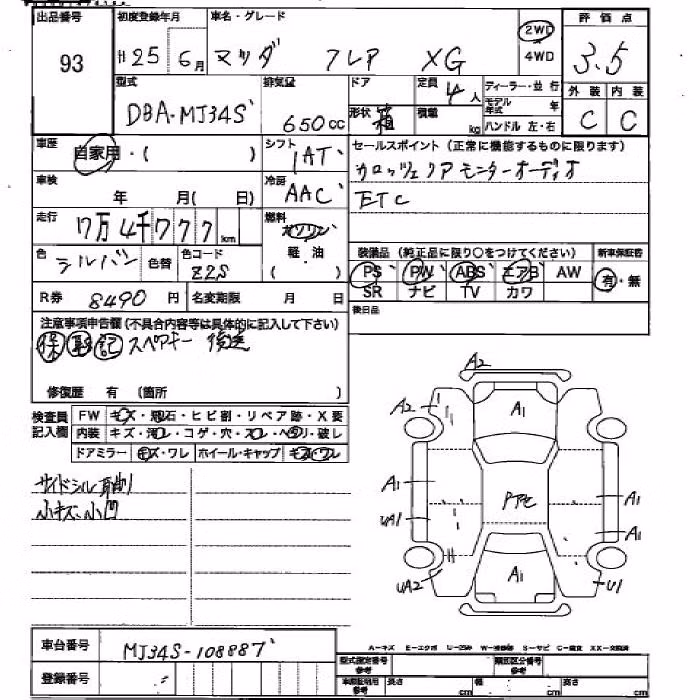 出品番号 初度登録年月 車名・グレード 評価点
93 H25年 6月 マツダ フレア XG 2WD 4WD 3.5
型式 排気量 ドア 定員 ディーラー・並行 外装 内装
DBA-MJ34S 650cc 形状 箱 4人 積載 kg モデル年式 年 ハンドル 左・右 C C
車歴 自家用・( ) シフト 1AT セールスポイント(正常に機能するものに限ります)
カロッツェリアモニターオーディオ
車検 年 月( 日) 冷房 AAC ETC
走行 7万4千777km 燃料 ガソリン 軽・油 ( )
色 シルバー 色替 色コード Z2S 装備品(純正品に限り○をつけてください) 新車保証書
PS PW ABS エアB AW 有・無
R券 8490円 名変期限 月 日 SR ナビ TV カワ
後日品
注意事項申告欄(不具合内容等は具体的に記入して下さい)
保 取 記 スペアキー 後送
修復歴 有 (箇所 )
検査員記入欄 FW キズ・飛石・ヒビ割・リペア跡・X要
内装 キズ・汚レ・コゲ・穴・スレ・ヘタリ・破レ
ドアミラー キズ・ワレ ホイール・キャップ キズ・ワレ
サイドシル 耳削
小キズ、小凹
A2
A2 A1
A1 A1
UA1 Pアセ A1
UA2 A1 U1
車台番号 MJ34S-108887
A-キズ E-エクボ U-凹み W-補修跡 S-サビ C-腐食 XX-交換済
登録番号 型式指定番号 参考 類別区分番号 参考
車庫証明用 参考 長さ cm 幅 cm 高さ cm